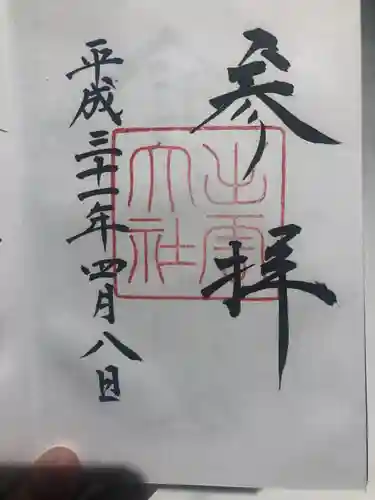 参拝
出雲
大社
平成三十一年四月八日